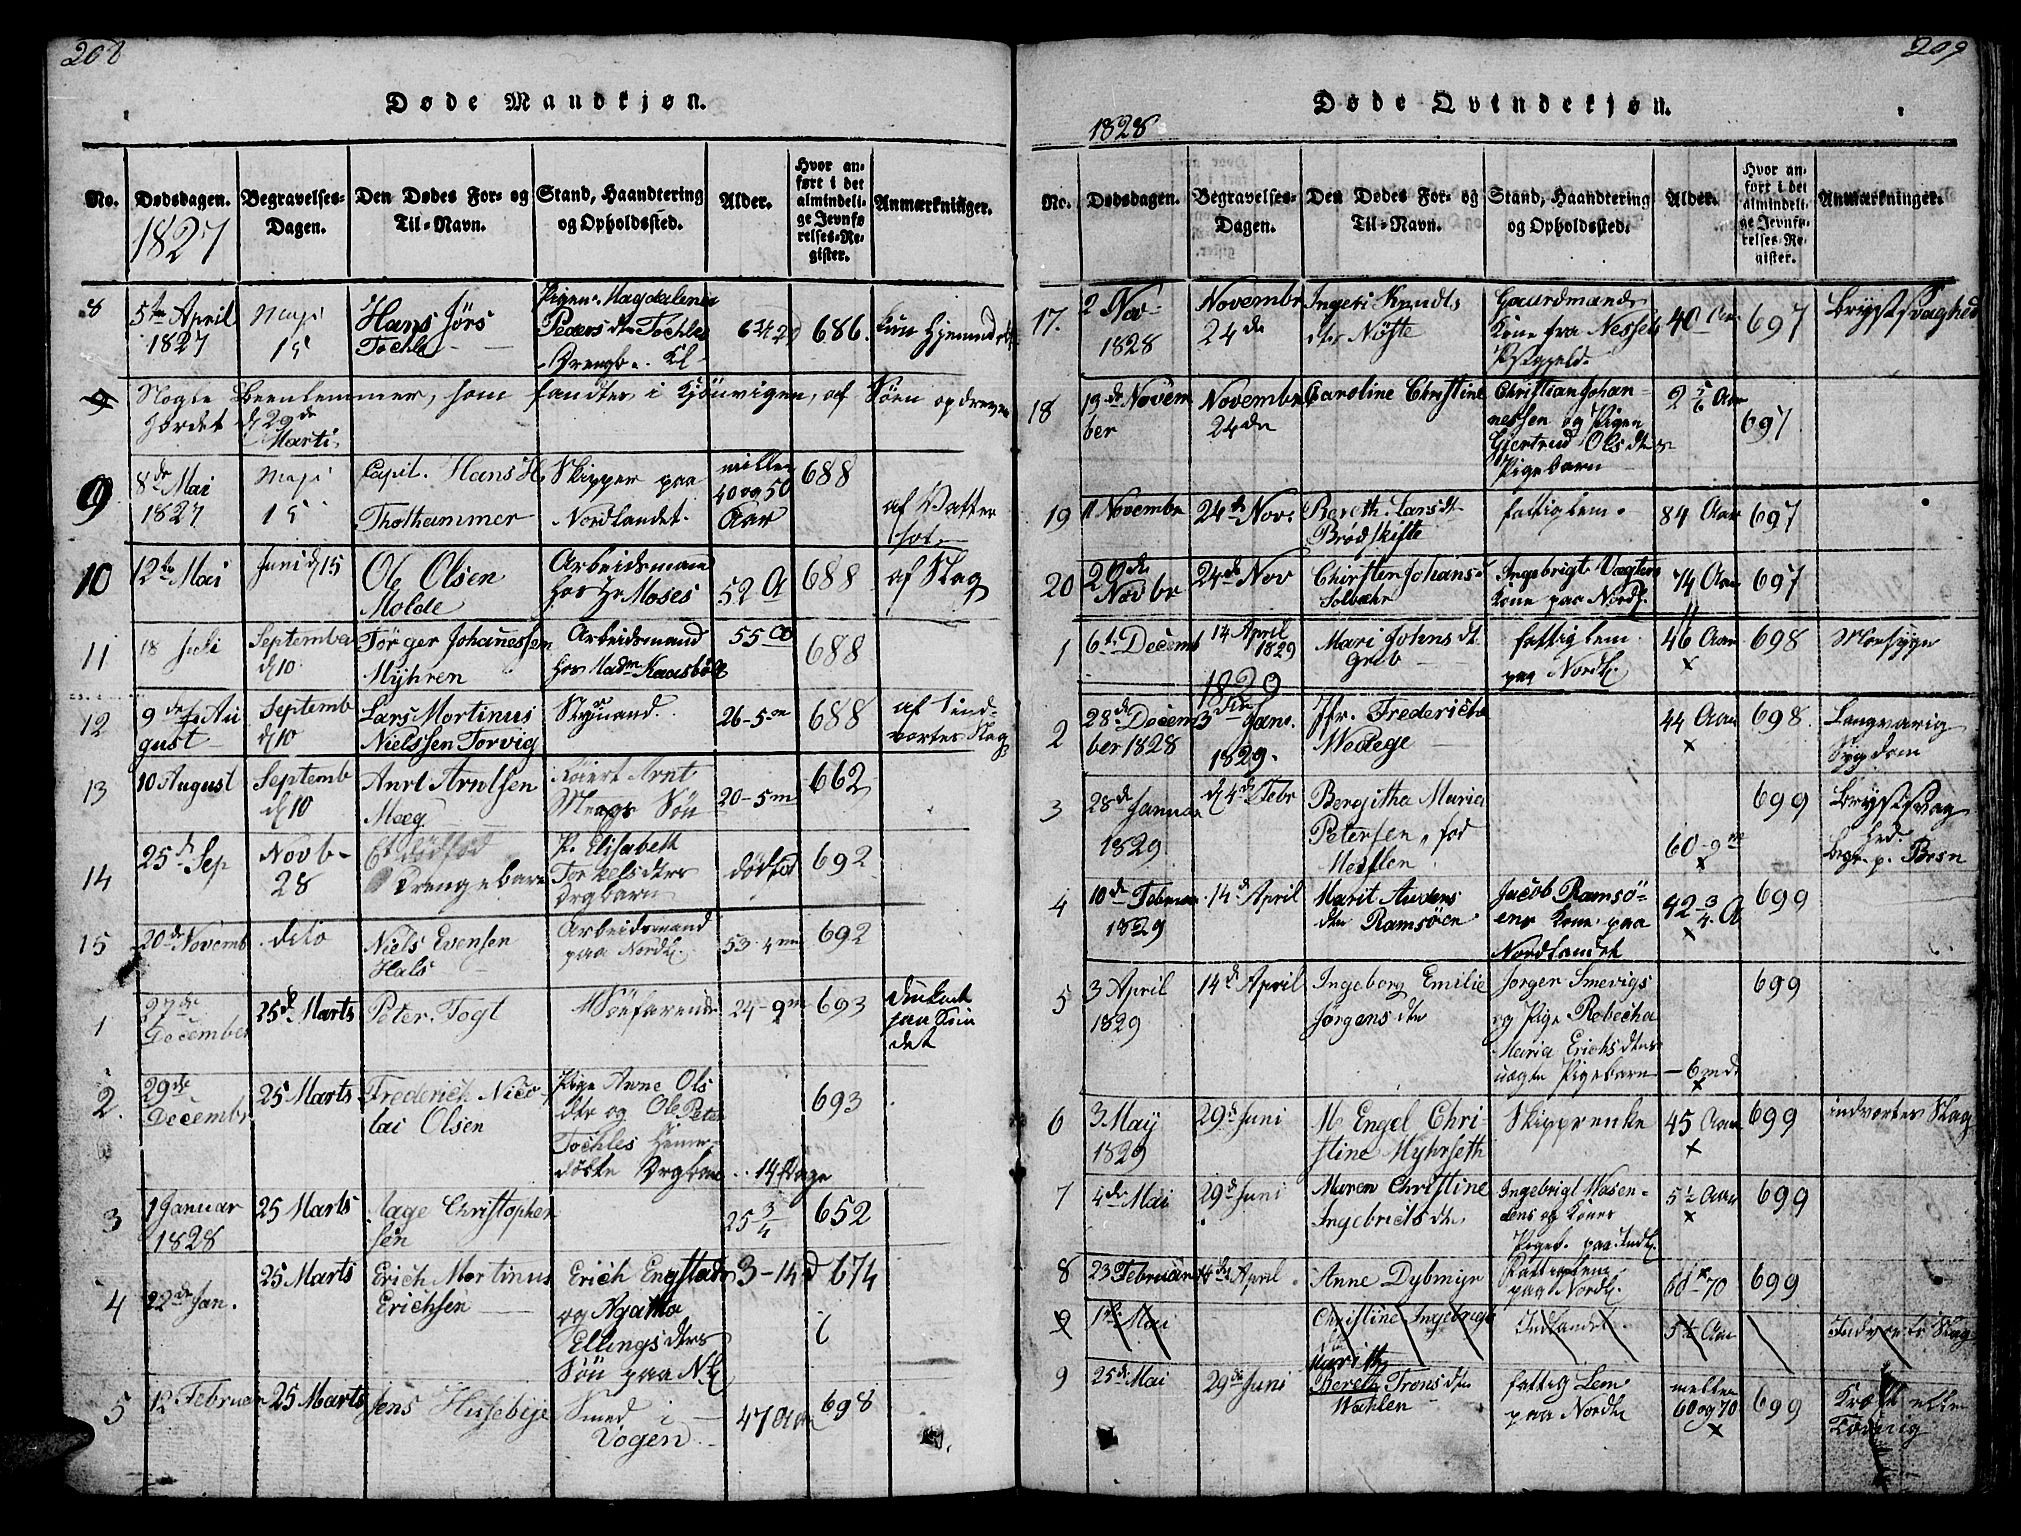 208
Døde Mandkjøn.
No.
Dødsdagen.
1827
Begravelses-
Dagen.
Den Dødes For- og
Til-Navn.
Stand, Haandtering
og Opholdssted.
Alder.
Hvor an-
ført i det
almindeli-
ge Jevnfø-
relses-Re-
gister.
Anmærkninger.
8
5te April
1827
Maji
15
Hans Jörs
Tochle
Pigen Magdalena
Peders dtr Tochles
Drengb.
686.
kun Hjemmedöbt
9
Nogle Beenlemmer, som fandtes i Kjönvigen, af Söen opdrevne
Jordet d 29de
Marti
9.
8de Mai
1827
Maji
15
Capit. Hans H.
Tholhammer
Skipper paa
Nordlandet.
mellem
40 og 50
Aar
688
af Vatter
sot
10
12te Mai
Juni d 15
Ole Olsen
Molde
Arbeidsmand
hos Hr Moses
52 A
688
af Slag
11
18 Juli
Septembr
d 10
Törger Johanessen
Myhren
Arbeidsmand
hos Madm Kaasböll
55
688
12
9de Au
gust
Septemb
d 10
Lars Mortinus
Nielssen Torvig
Styrmand
26-5m
688
af Ind-
vortes Slag
13
10 August
Septemb
d 10
Arnt Arntsen
Mæg
Arnt
Mægs Sön
20-5m
662
14
25d Sep
Novb-
28
Et dödfod
Drengebarn
P. Elisabeth
Torkelsdtrs
Drgbarn
dödfod
692
15
20de Novemb
dito
Niels Evensen
Hals
Arbeidsmand
paa Nordl.
53-4m
692
1
27de
December
25d Marts
Peter Fogt
Söefarende
24-9m
693
druknet
paa
det
2.
29de
Decembr
25 Marts
Frederich Nico-
lai Olsen
Pige Anne Ols
dtr og Ole Peter
Tochles Hiemme
döbte Drgbarn
14 Dage
693
3
1 Januar
1828
25 Marts
Aage Christopher
sen
25 3/4
652
4
22de Jan.
25 Marts
Erich Mortinus
Erichsen
Erich Engstads
og Agatha
Ellings dtrs
Sön paa Nl
3-14d
674
5
12 Februar
25 Marts
Jens Husebye
Smed i
Vogen
47 Aar
698
209
Døde Qvindekjøn.
1828
No.
Dødsdagen.
Begravelses-
Dagen.
Den Dødes For- og
Til-Navn.
Stand, Haandtering
og Opholdssted.
Alder.
Hvor an-
ført i det
almindeli-
ge Jevnfø-
relses-Re-
gister.
Anmærkninger.
17.
2 Nov-
1828
Novembr
24de
Ingeri Knudts
dtr Nöste
Gaardmands
Kone fra Nessets
Præstgjeld.
40 Aar
697
Brystsvaghed
18
13de Novem
ber
Novembr
24de
Caroline Christine
Christian Johan-
nessen og Pigen
Giertrud Olsdtrs
Pigebarn
2 5/6 Aar
697
19
11 Novembr
24de Nov.
Bereth Larsdt
Brødskifte
fattiglem.
84 Aar
697
20
20de
Novbr
24de Nov
Chirsten Johansd
Solbahr
Ingebrigt Vægters
Kone paa Nordl.
74 Aar
697
1
6te Decemb
14 April
1829
Mari Johns dt
Grib
fattiglem
paa Nordl.
46 Aar
x
698
2
28de Decem
ber 1828
1829
3die Jan.
1829.
Jfr. Frederiche
Wedege
44 Aar
x
698.
Langvarig
Sygdom
3
28de Januar
1829
d 4de Febr
Bergitha Maria
Petersen, fod
60-9m
x
699
Brystsvag
hed.
begr. p. Bosn
4
10de Februar
1829
14de April
Marit Anders
dtr Ramsöen
Jacob Ramsö-
ens Kone paa
Nordlandet
42 3/4 A
x
699
5
3 April
1829
14de April
Ingeborg Emilie
Jörgens dtr
Jörgen Smevigs
og Pige Rebecha
Maria Erichsdtrs
uægte Pigebarn
- 6 mdr
x
699
6
3 May
1829
29de Juni
M Engel Chri-
stine Myhrseth
Skipprenke
45 Aar
x
699
indvortes Slag
7
4de Mai
29de Juni
Maren Christine
Ingebricts dtr
Ingebrigt Wasen-
dens og Kones
Pigeb. paa Indl.
5 1/2 Aar
x
699
8
23 Februar
14de April
Anne Dybmyr
Fattiglem
paa Nordl.
60-70
x
699
9
1ste Mai
Christine Ingebrigts
Indlandet
5 1/2 Aar
Indvortes Slag
9
25de Mai
29de Juni
Marith
Bereth Trons dtr
Wahlen
fattig Lem
paa Nordl
mellem
60 og 70
x
699